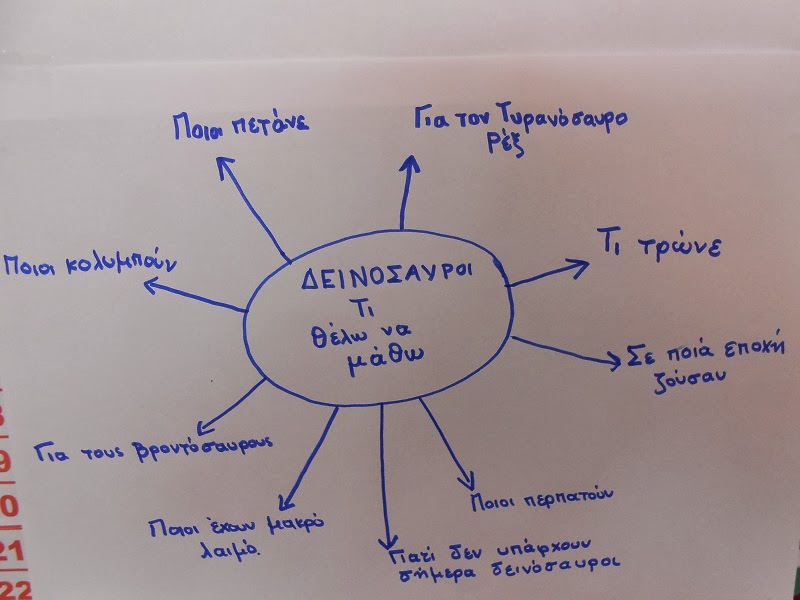 Ποιοι πετάνε
Για τον Τυρανόσαυρο
Ρέξ
Ποιοι κολυμπούν
Τι τρώνε
ΔΕΙΝΟΣΑΥΡΟΙ
Τι
θέλω να
μάθω
Σε ποιά εποχή
ζούσαν
Για τους βροντόσαυρους
Ποιοι έχουν μακρό
λαιμό.
Γιατί δεν υπάρχουν
σήμερα δεινόσαυροι
Ποιοι περπατούν
9
0
21
22